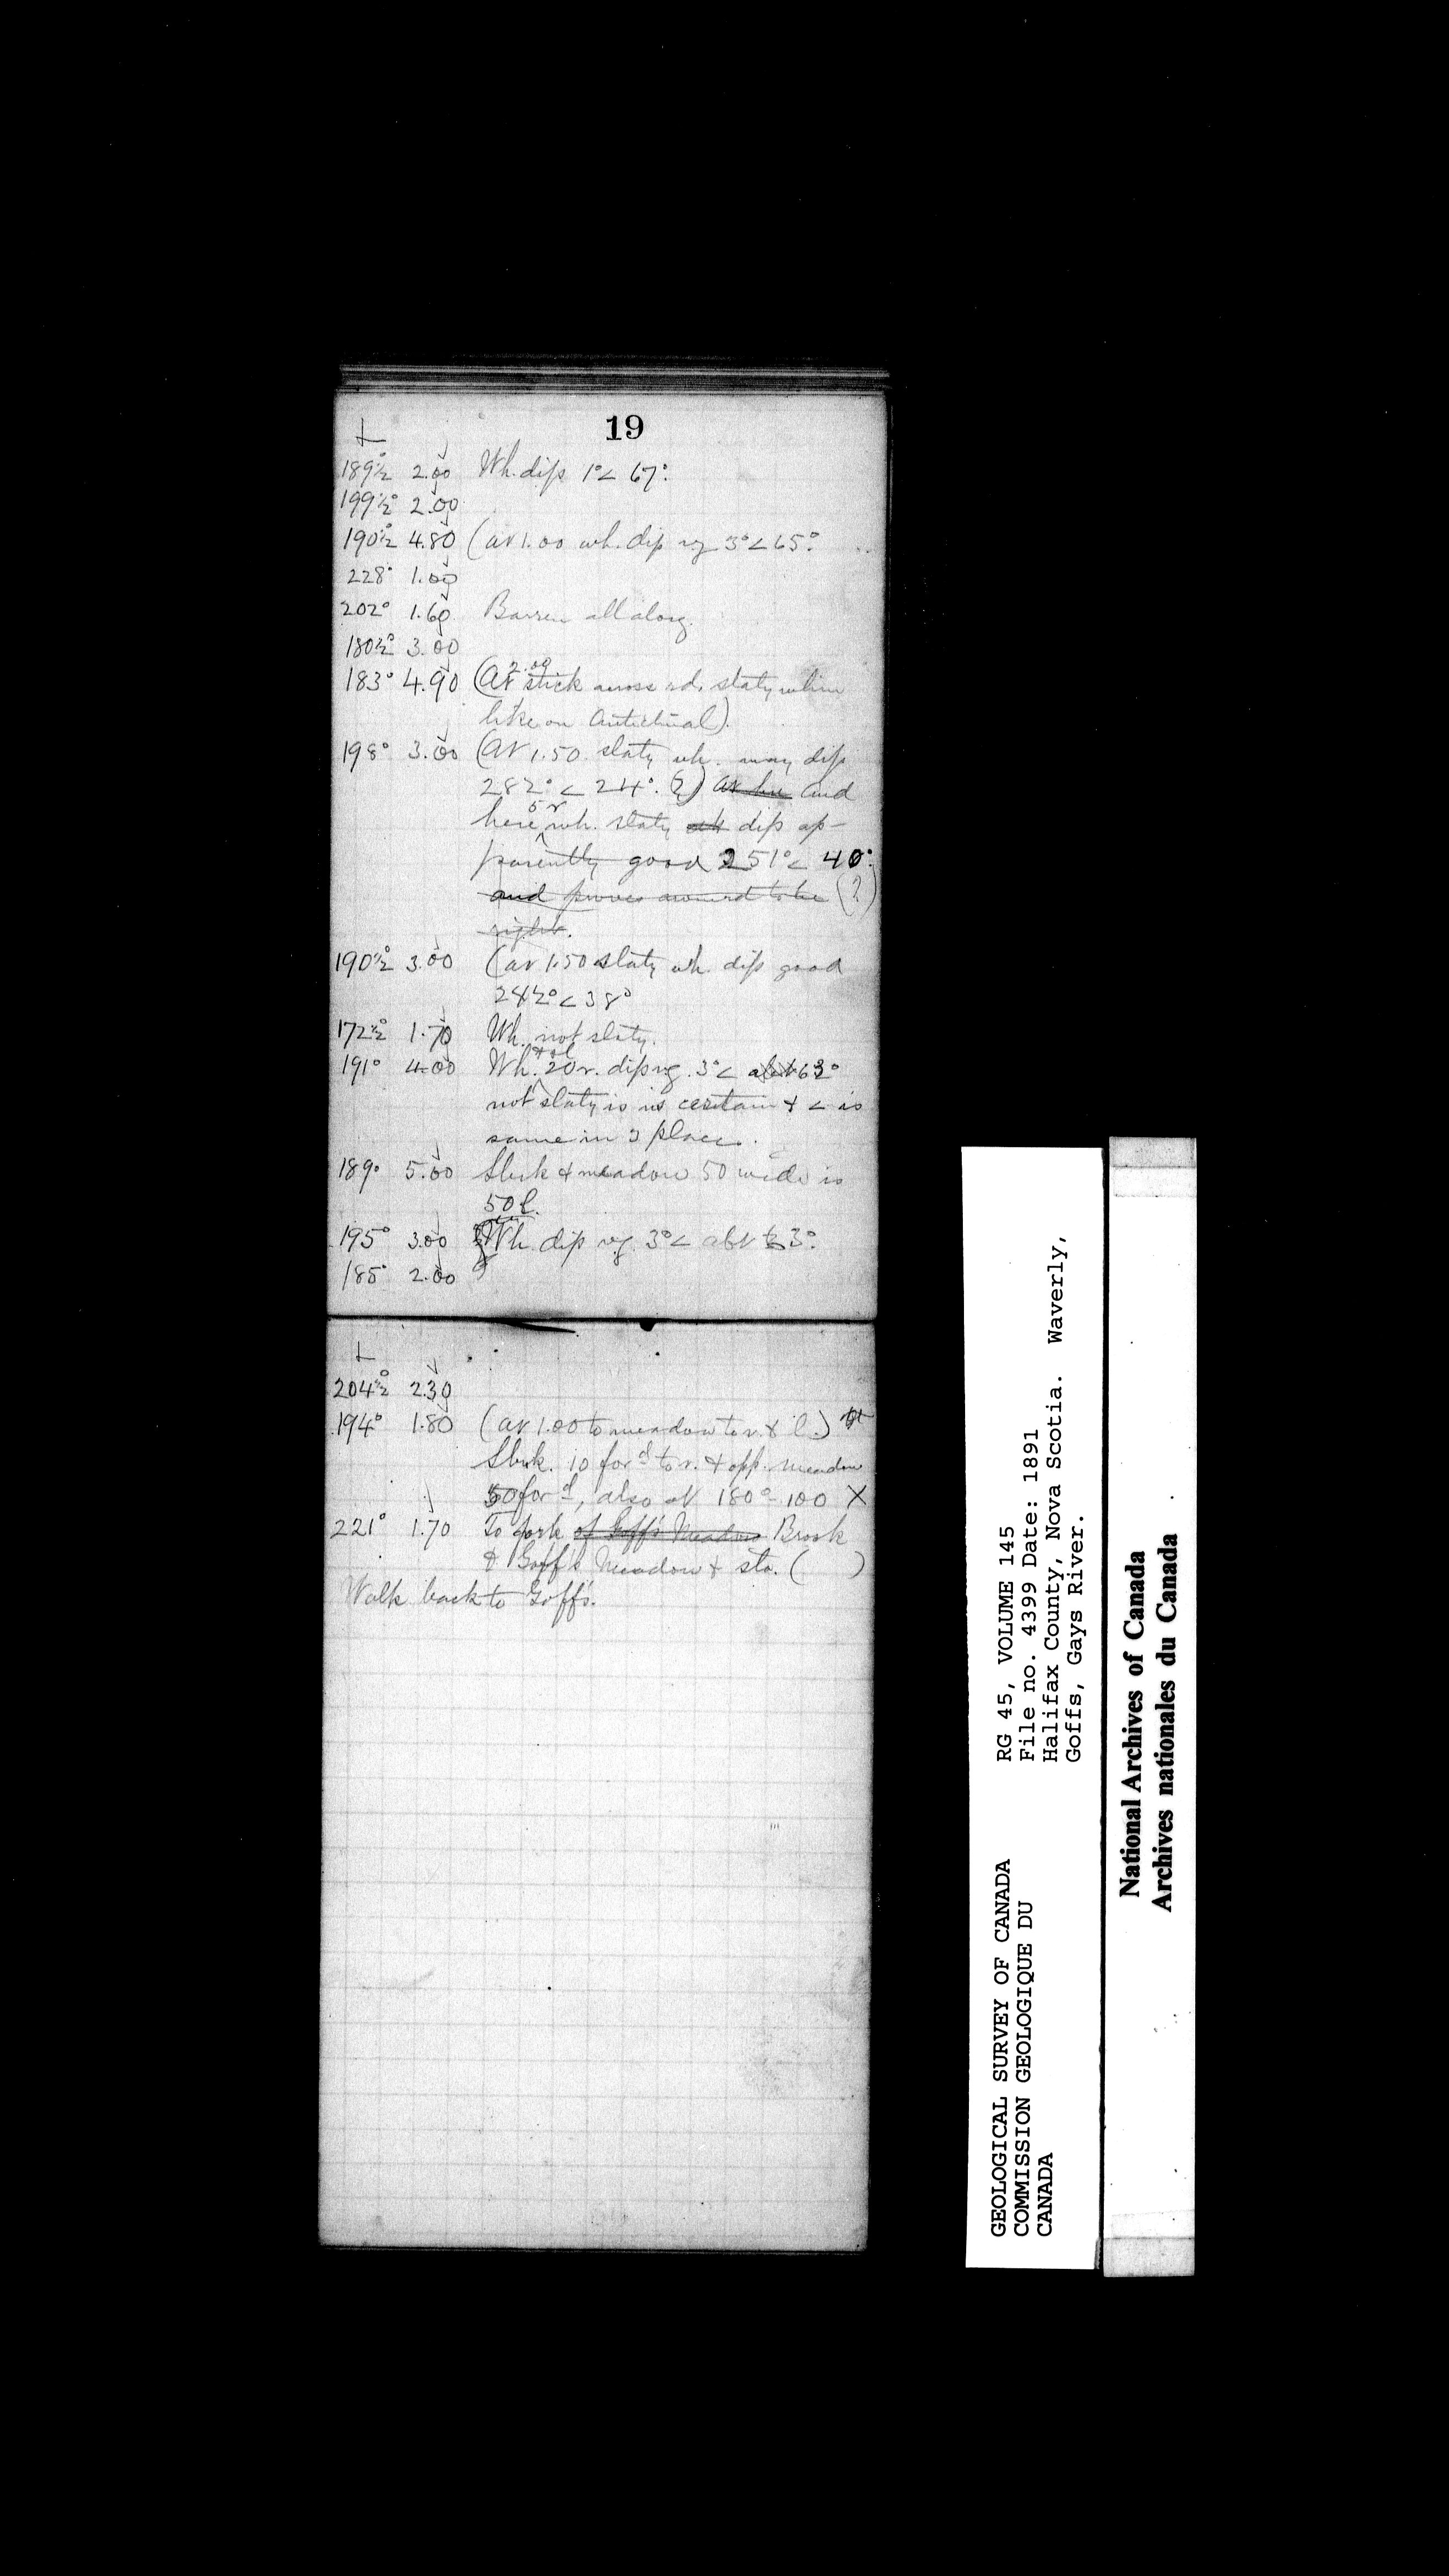 19
189½° 2.00 Wh. dip 1°< 67°.
199½° 2.00
190½° 4.80 (at 1.00 wh. dip rg 3°<65°.
228° 1.00
202° 1.60 Barren all along.
180½° 3.00
2.00
183° 4.90 (At stick across rd. slaty whin
like on Anticlinal).
198° 3.00 (At 1.50 slaty wh. may dip
282° < 24°. (?) and
5 r
here wh. slaty dip ap-
parently good 251°< 40°.
and proves to be (?)
right.
190½° 3.00 (at 1.50 slaty wh. dip good
242°<38°
172½° 1.70 Wh. not slaty.
& ol
191° 4.00 Wh. 20 r. dip rg. 3°< 63°
not slaty is certain & < is
same in 3 places.
189° 5.00 Sbrk & meadow 50 wide is
50 l.
195° 3.00 Wh. dip rg. 3°< abt 3°.
185° 2.00
204½° 2.30
194° 1.80 (at 1.00 to meadow to r. & l.)
Sbrk. 10 for'd to r. & opp. meadow
50 for'd, also at 180° 100 X
221° 1.70 To fork of Goff's Meadow Brook
& Goff's Meadow & sta. ( )
Walk back to Goff's.
RG 45, VOLUME 145
File no. 4399 Date: 1891
Halifax County, Nova Scotia. Waverly,
Goffs, Gays River.
GEOLOGICAL SURVEY OF CANADA
COMMISSION GEOLOGIQUE DU
CANADA
National Archives of Canada
Archives nationales du Canada